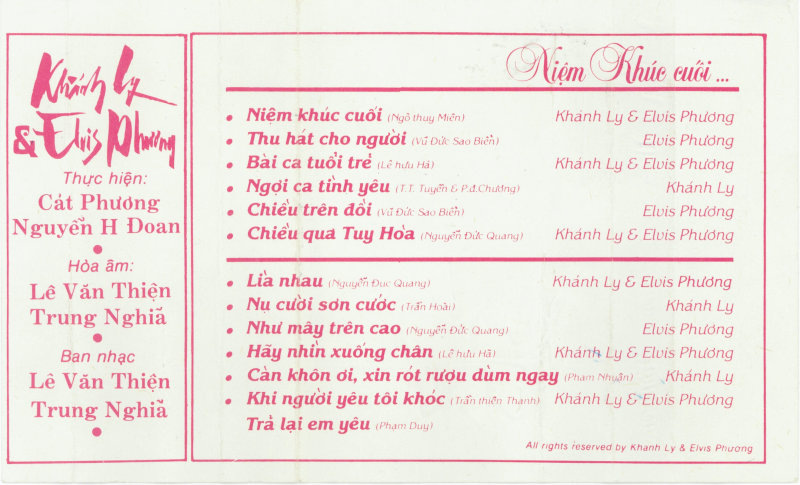 Khánh Ly
& Elvis Phương
Thực hiện:
Cát Phương
Nguyễn H Đoan
Hòa âm:
Lê Văn Thiện
Trung Nghiã
Ban nhạc
Lê Văn Thiện
Trung Nghiã
Niệm Khúc cuối ...
• Niệm khúc cuối (Ngô thụy Miên) Khánh Ly & Elvis Phương
• Thu hát cho người (Vũ Đức Sao Biển) Elvis Phương
• Bài ca tuổi trẻ (Lê hưu Hà) Khánh Ly & Elvis Phương
• Ngợi ca tình yêu (T.T. Tuyền & P.đ.Chương) Khánh Ly
• Chiều trên đồi (Vũ Đức Sao Biển) Elvis Phương
• Chiều qua Tuy Hòa (Nguyễn Đức Quang) Khánh Ly & Elvis Phương
• Lià nhau (Nguyễn Đuc Quang) Khánh Ly & Elvis Phương
• Nụ cười sơn cước (Trần Hoài) Khánh Ly
• Như mây trên cao (Nguyễn Đức Quang) Elvis Phương
• Hãy nhìn xuống chân (Lê hưu Hà) Khánh Ly & Elvis Phương
• Càn khôn ơi, xin rót rượu dùm ngay (Pham Nhuận) Khánh Ly
• Khi người yêu tôi khóc (Trần thiện Thanh) Khánh Ly & Elvis Phương
Trả lại em yêu (Phạm Duy)
All rights reserved by Khanh Ly & Elvis Phuong